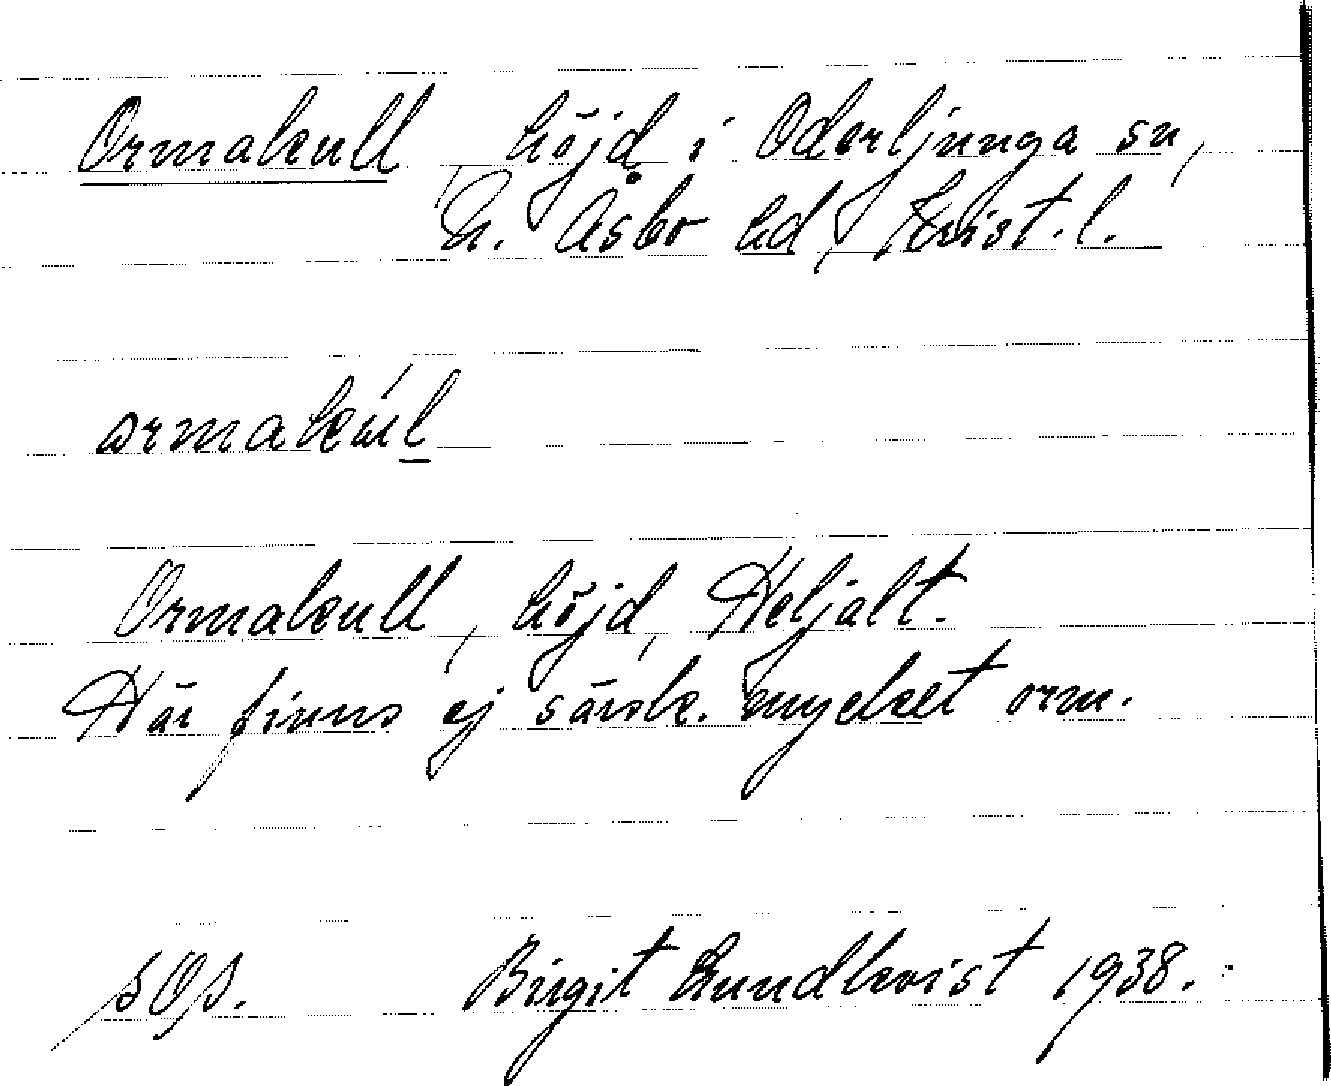 Ormakull, höjd i Oderljunga sn,
N. Åsbo hd, Krist. l.
ormakúl
Ormakull, höjd, Heljalt.
Här finns ej särsk. mycket orm.
Birgit Lundkvist 1938.